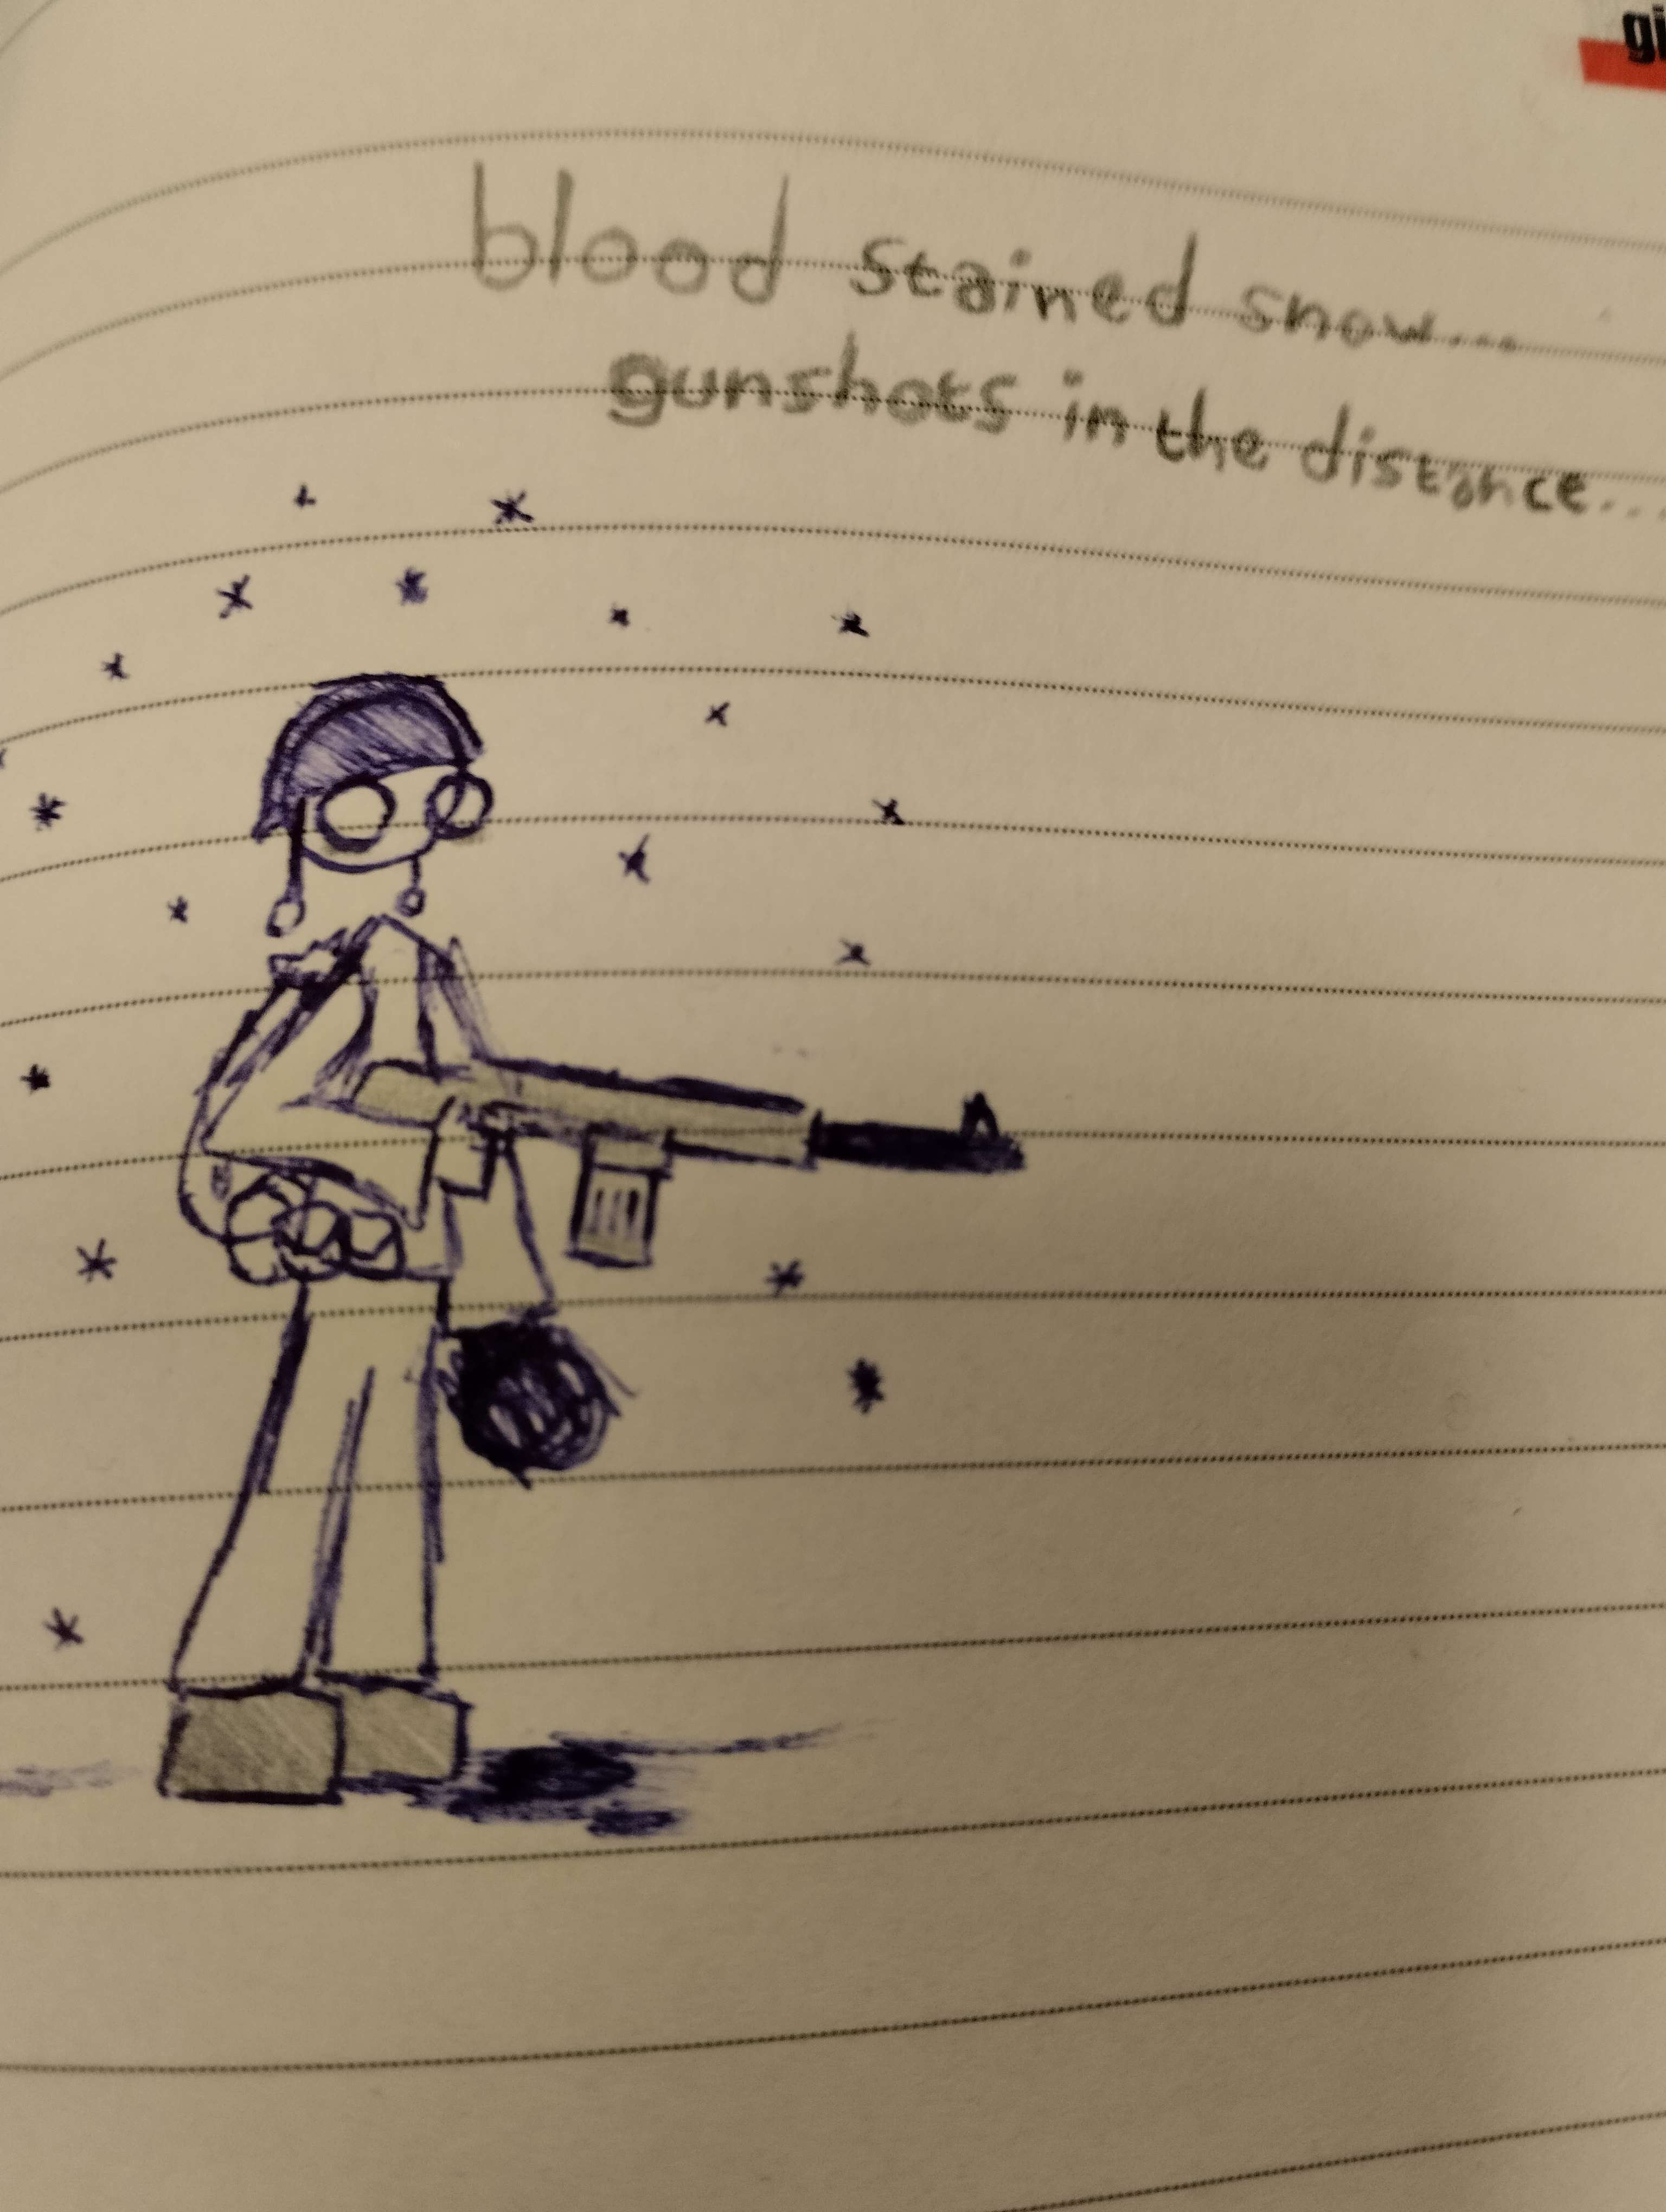 gi
blood stained snow...
gunshots in the distance...